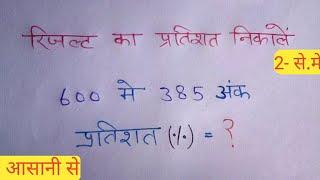 रिजल्ट का प्रतिशत निकालें
2- से.मे
600 मे 385 अंक
प्रतिशत (%) = ?
आसानी से